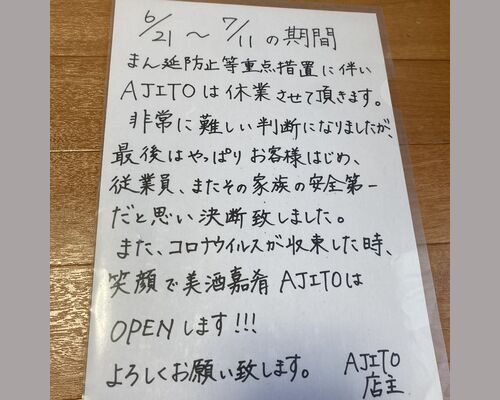 6/21 〜 7/11 の期間
まん延防止等重点措置に伴い
AJITOは休業させて頂きます。
非常に難しい判断になりましたが、
最後はやっぱりお客様はじめ、
従業員、またその家族の安全第一
だと思い決断致しました。
また、コロナウイルスが収束した時、
笑顔で美酒嘉肴 AJITOは
OPENします!!!
よろしくお願い致します。
AJITO
店主